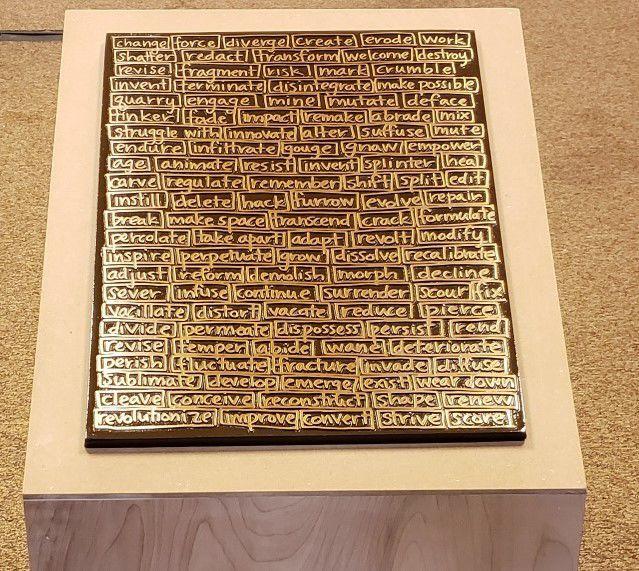 change force diverge create erode work
shatter redact transform welcome destroy
revise fragment risk mark crumble
invent terminate disintegrate make possible
quarry engage mine mutate deface
tinker fade impact remake abrade mix
struggle with innovate alter suffuse mute
endure infiltrate gouge gnaw empower
age animate resist invent splinter heal
carve regulate remember shift split edit
instill delete hack furrow evolve repair
break make space transcend crack formulate
percolate take apart adapt revolt modify
inspire perpetuate grow dissolve recalibrate
adjust reform demolish morph decline
sever infuse continue surrender scour fix
vacillate distort vacate reduce pierce
divide permeate dispossess persist rend
revise temper abide wane deteriorate
perish fluctuate fracture invade diffuse
sublimate develop emerge exist wear down
cleave conceive reconstruct shape renew
revolutionize improve convert strive score